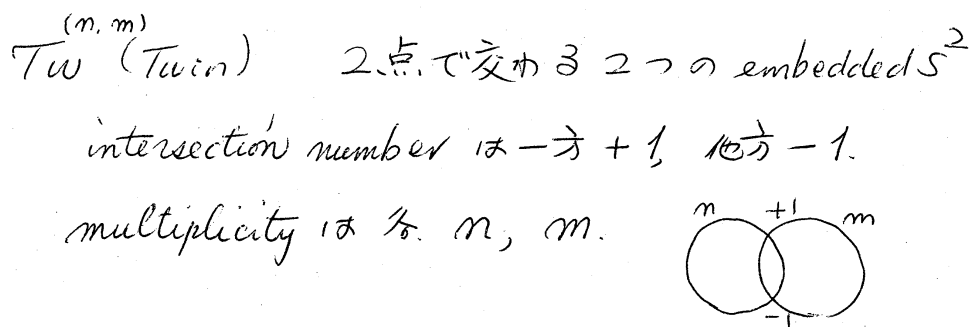 (n, m)
Tw (Twin) 2点で交わる2つの embedded S²
intersection number は一方+1, 他方−1.
multiplicity は各 n, m.
n +1 m
−1